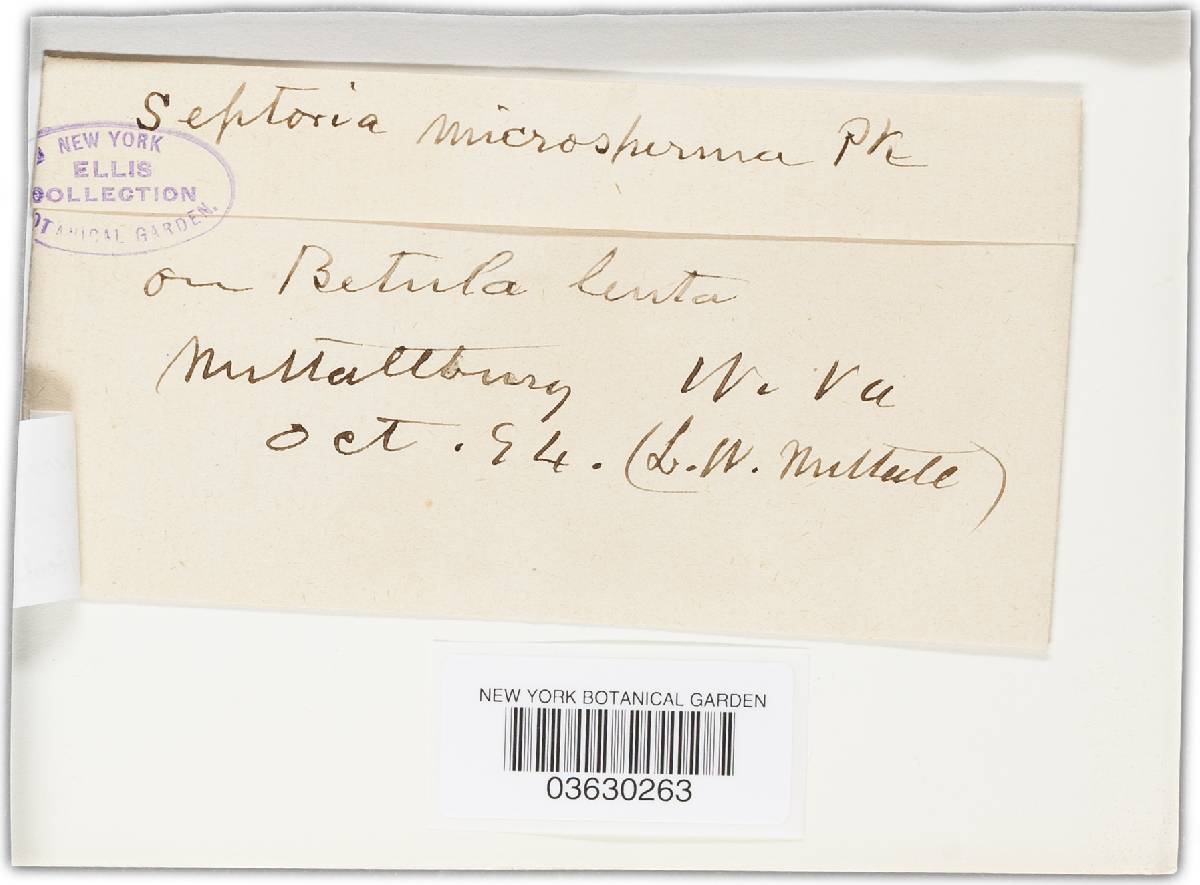 Septoria microsperma Pk
NEW YORK
ELLIS
COLLECTION
BOTANICAL GARDEN.
on Betula lenta
Nuttallburg W. Va
Oct. 94. (L. W. Nuttall)
NEW YORK BOTANICAL GARDEN
03630263